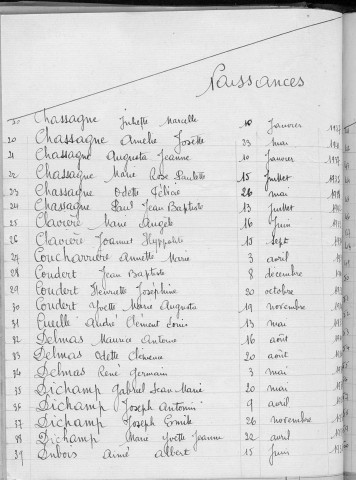 Naissances
Chassagne Juliette Marcelle 10 Janvier
20 Chassagne Amélie Josette 23 mai
21 Chassagne Augusta Jeanne 10 Janvier
22 Chassagne Marie Rose Paulette 15 Juillet
23 Chassagne Odette Félicie 26 mai
24 Chassagne Paul Jean Baptiste 13 Juillet
25 Clavière Marie Angèle 16 Juin
26 Clavière Joannes Hyppolite 15 Sept
27 Coucharrière Annette Marie 3 avril
28 Coudert Jean Baptiste 8 décembre
29 Coudert Henriette Joséphine 20 octobre
30 Coudert Yvette Marie Augusta 19 novembre
31 Cueille André Clément Louis 13 mai
32 Delmas Maurice Antoine 16 août
33 Delmas Odette 20 août
34 Delmas René Germain 3 mai
35 Dichamp Gabriel Jean Marie 20 mai
36 Dichamp Joseph Antonin 9 avril
37 Dichamp Joseph Emile 26 novembre
38 Dichamp Marie Yvette Jeanne 22 avril
39 Dubois Aimé Albert 15 Juin